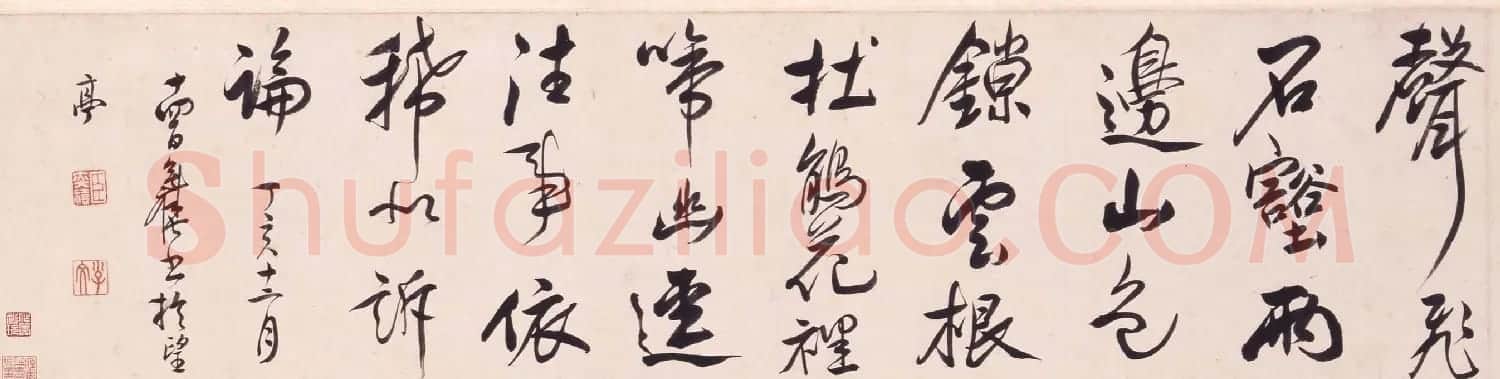 聲飛
石壑兩
邊山色
鏁雲根
杜鵑花裡
啼幽逕
往事依
稀似訴
論
丁亥十二月
十四日書於望
亭
Shufaziliao.COM